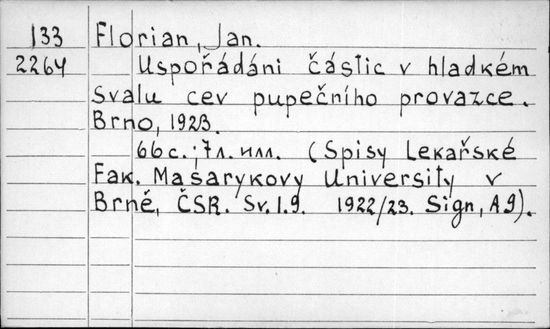 133 Florian, Jan.
2264 Uspořádáni částic v hladkém
svalu cev pupečního provazce.
Brno, 1923.
66 с.; 7 л. илл. (Spisy Lekařské
Fak. Masarykovy University v
Brně, ČSR. Sv. I. 9. 1922/23. Sign, A 9).